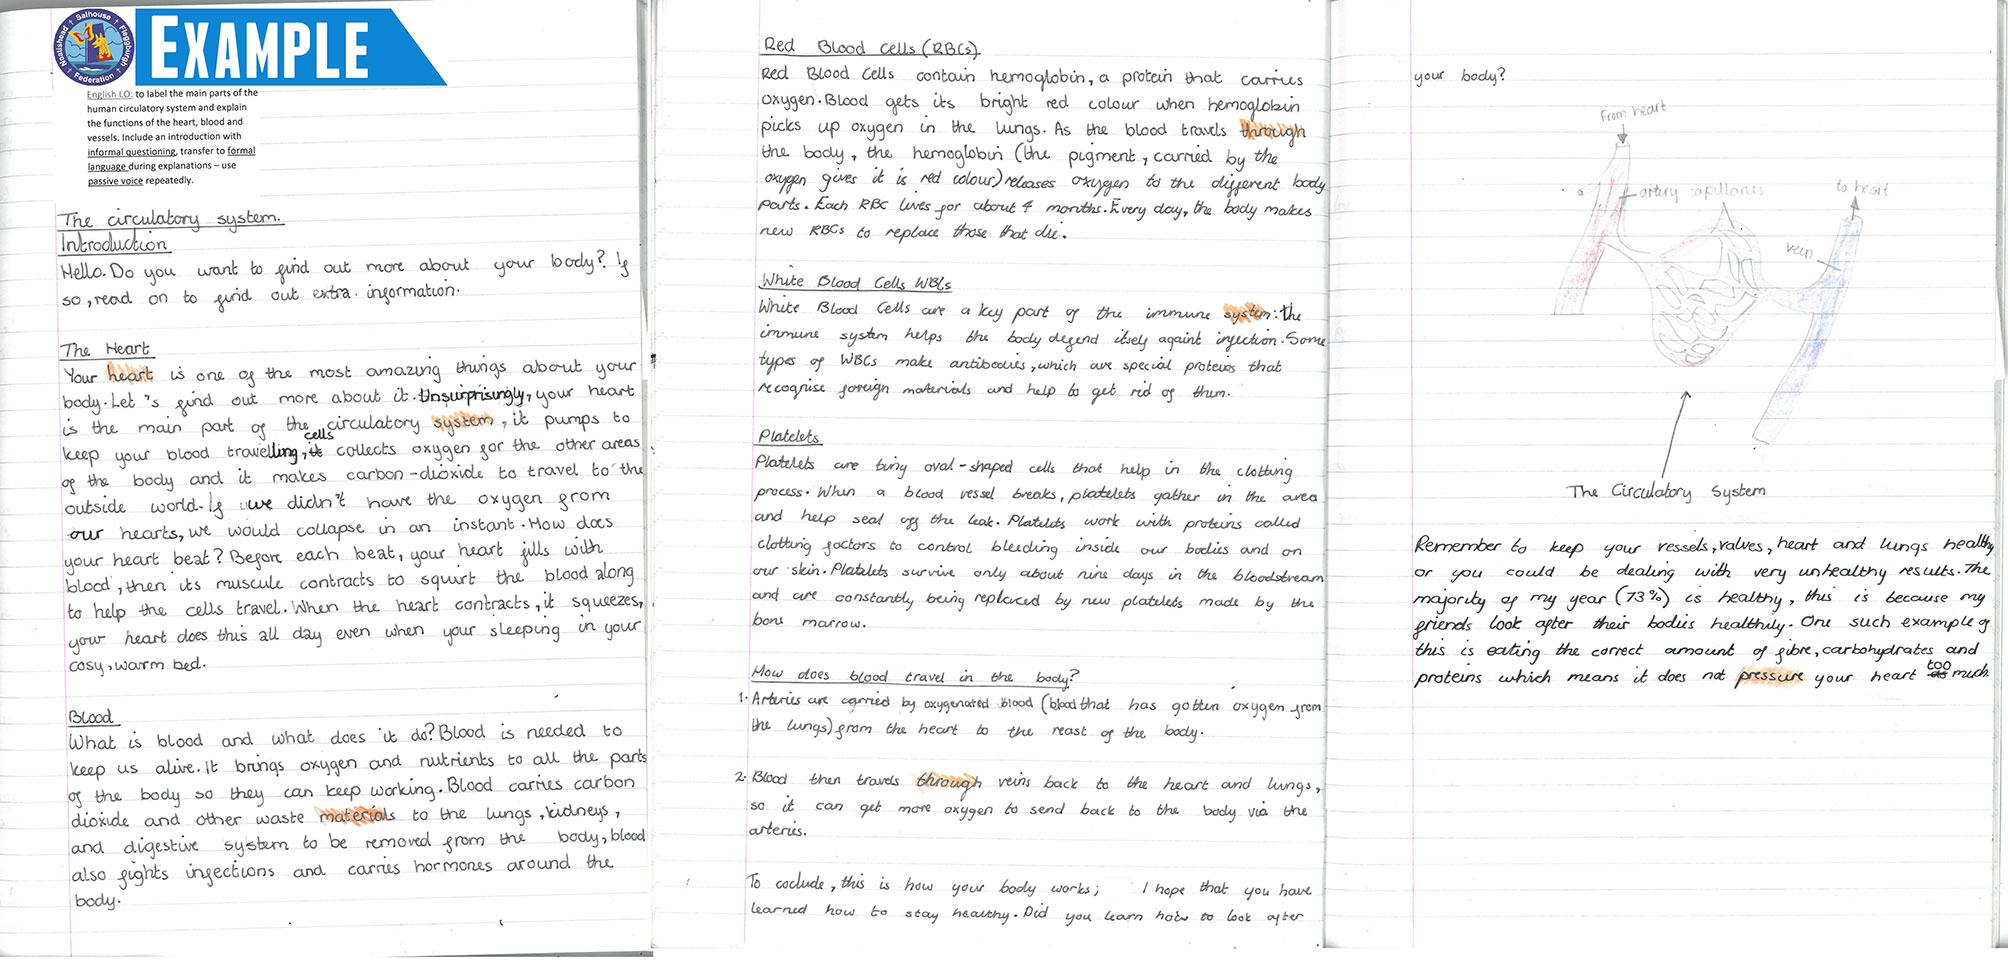 Neatishead † Salhouse † Fleggburgh † Federation †
EXAMPLE
English LO: to label the main parts of the
human circulatory system and explain
the functions of the heart, blood and
vessels. Include an introduction with
informal questioning, transfer to formal
language during explanations – use
passive voice repeatedly.
The circulatory system.
Introduction
Hello. Do you want to find out more about your body? If
so, read on to find out extra. information.
The Heart
Your heart is one of the most amazing things about your
body. Let's find out more about it. Unsurprisingly, your heart
is the main part of the circulatory system, it pumps to
keep your blood travelling, cells collects oxygen for the other areas
of the body and it makes carbon-dioxide to travel to the
outside world. If we didn't have the oxygen from
our hearts, we would collapse in an instant. How does
your heart beat? Before each beat, your heart fills with
blood, then its muscule contracts to squirt the blood along
to help the cells travel. When the heart contracts, it squeezes,
your heart does this all day even when your sleeping in your
cosy, warm bed.
Blood
What is blood and what does it do? Blood is needed to
keep us alive. It brings oxygen and nutrients to all the parts
of the body so they can keep working. Blood carries carbon
dioxide and other waste materials to the lungs, kidneys,
and digestive system to be removed from the body, blood
also fights infections and carries hormones around the
body.
Red Blood Cells (RBCs)
Red Blood Cells contain hemoglobin, a protein that carries
oxygen. Blood gets its bright red colour when hemoglobin
picks up oxygen in the lungs. As the blood travels through
the body, the hemoglobin (the pigment, carried by the
oxygen gives it is red colour) releases oxygen to the different body
parts. Each RBC lives for about 4 months. Every day, the body makes
new RBCs to replace those that die.
White Blood Cells WBCs
White Blood Cells are a key part of the immune system: the
immune system helps the body defend itself againt infection. Some
types of WBCs make antibodies, which are special proteins that
recognise foreign materials and help to get rid of them.
Platelets
Platelets are tiny oval-shaped cells that help in the clotting
process. When a blood vessel breaks, platelets gather in the area
and help seal off the leak. Platelets work with proteins called
clotting factors to control bleeding inside our bodies and on
our skin. Platelets survive only about nine days in the bloodstream
and are constantly being replaced by new platelets made by the
bone marrow.
How does blood travel in the body?
1. Arteries are carried by oxygenated blood (blood that has gotten oxygen from
the lungs) from the heart to the reast of the body.
2. Blood then travels through veins back to the heart and lungs,
so it can get more oxygen to send back to the body via the
arteries.
To coclude, this is how your body works; I hope that you have
learned how to stay healthy. Did you learn how to look after
your body?
From heart
artery capillaries
to heart
vein
The Circulatory System
Remember to keep your vessels, valves, heart and lungs healthy
or you could be dealing with very unhealthy results. The
majority of my year (73%) is healthy, this is because my
friends look after their bodies healthily. One such example of
this is eating the correct amount of fibre, carbohydrates and
proteins which means it does not pressure your heart too much.